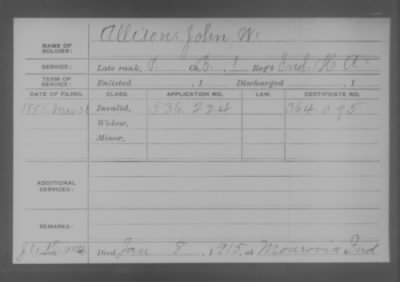 NAME OF SOLDIER: Allison, John W.
SERVICE: Late rank, P. Co. B, 1 Reg't Ind. H A.
TERM OF SERVICE: Enlisted , 1 Discharged , 1
DATE OF FILING. CLASS. APPLICATION NO. LAW. CERTIFICATE NO.
1885 Mar 31 Invalid, 536.224 364.095
Widow,
Minor,
ADDITIONAL SERVICES:
REMARKS:
Died Jan 8, 1915, at Monrovia Ind